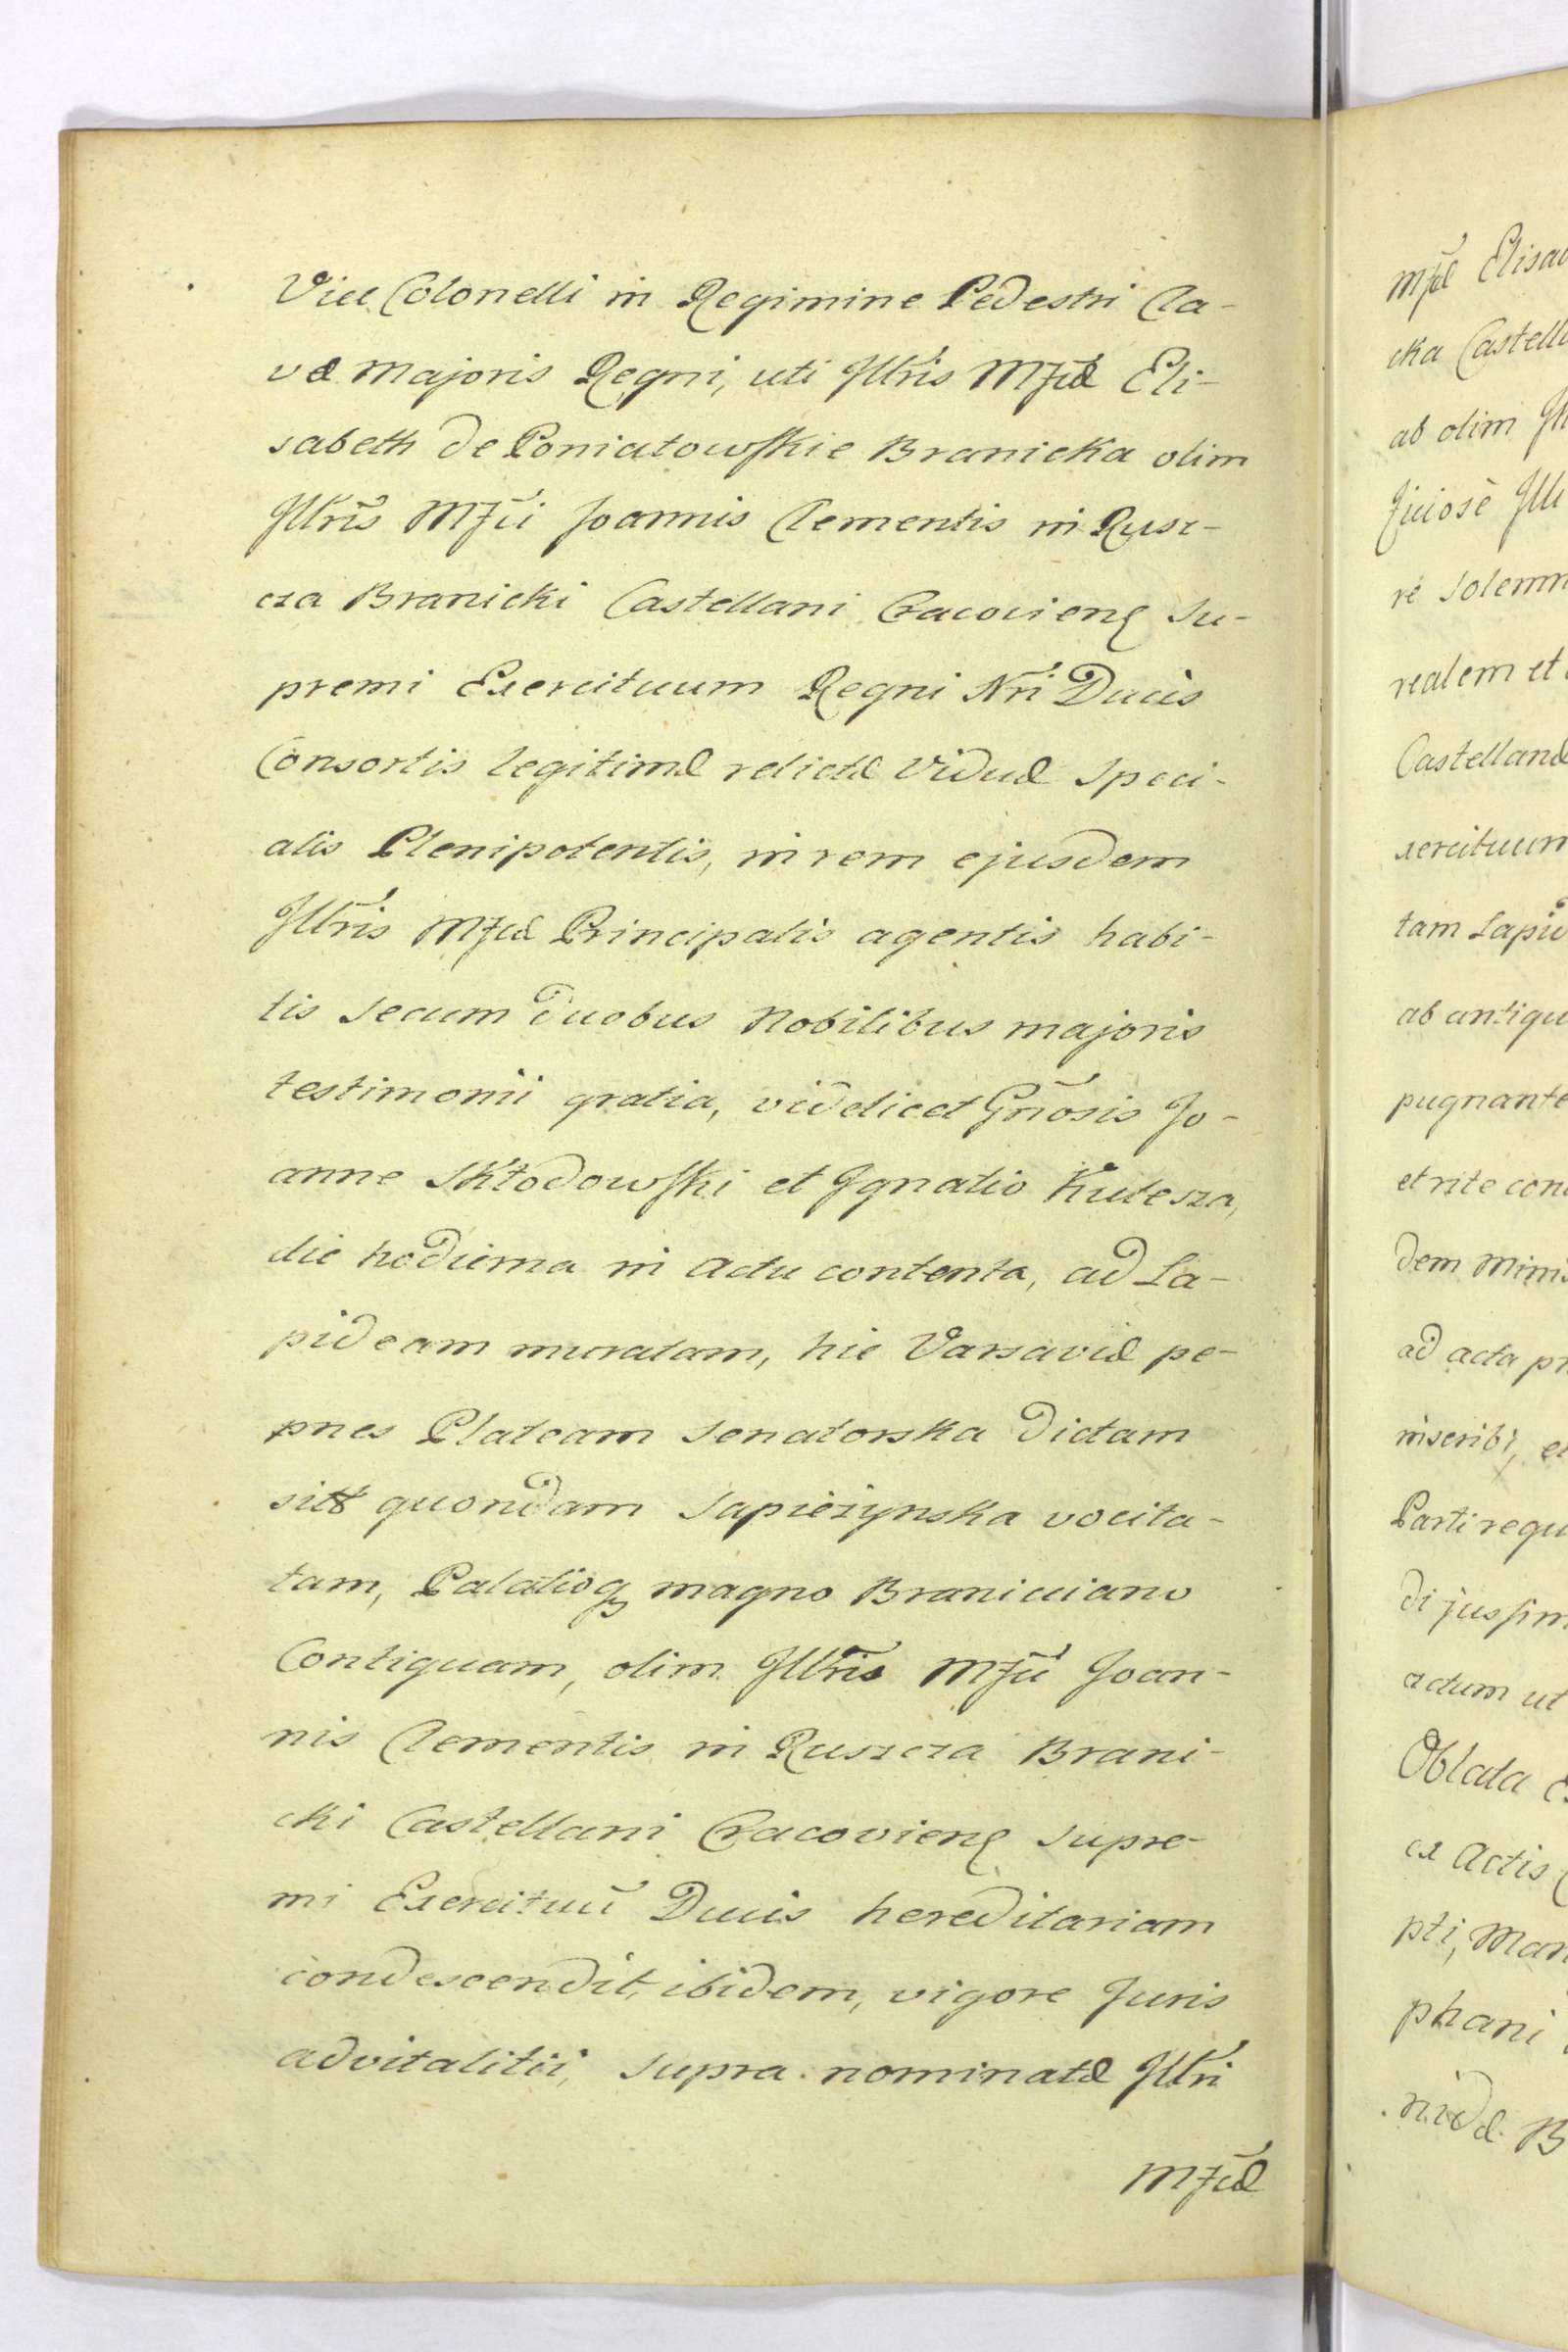 Vice Colonelli in Regimine Pedestri Cla-
væ Majoris Regni, uti Jllris Mfcæ Eli-
sabeth de Poniatowskie Branicka olim
Jllris Mfci Joannis Clementis in Rusz-
cza Branicki Castellani Cracovien Su-
premi Exercituum Regni Nri Ducis
Consortis legitimæ relictæ Viduæ Speci-
alis Plenipotentis, in rem ejusdem
Jllris Mfcæ Principalis agentis habi-
tis secum duobus Nobilibus majoris
testimonii gratia, videlicet Gñosis Jo-
anne Skłodowski et Jgnatio Kulesza,
die hodierna in Actu contenta, ad La-
pideam muratam, hic Varsaviæ pe-
pnes Plateam Senatorska Dictam
sitt quondam Sapiezynska vocita-
tam, Palatioq magno Branicciano
Contiguam, olim Jllris Mfci Joan-
nis Clementis in Ruszcza Brani-
cki Castellani Cracovien Supre-
mi Exercituũ Ducis hereditariam
condescendit, ibidem, vigore Juris
advitalitii, supra nominatæ Jllri
Mfcæ
mfcæ Elisa
cka Castell
ab olim Jll
re Solemn
realem et
Castellanæ
xercituum
tam Lapid
ab antiqu
pugnante
et rite con
dem Minis
ad acta pr
inscribi, e
Parti requ
di jussim
actum ut
Oblata E
ex Actis
pti, Man
phani